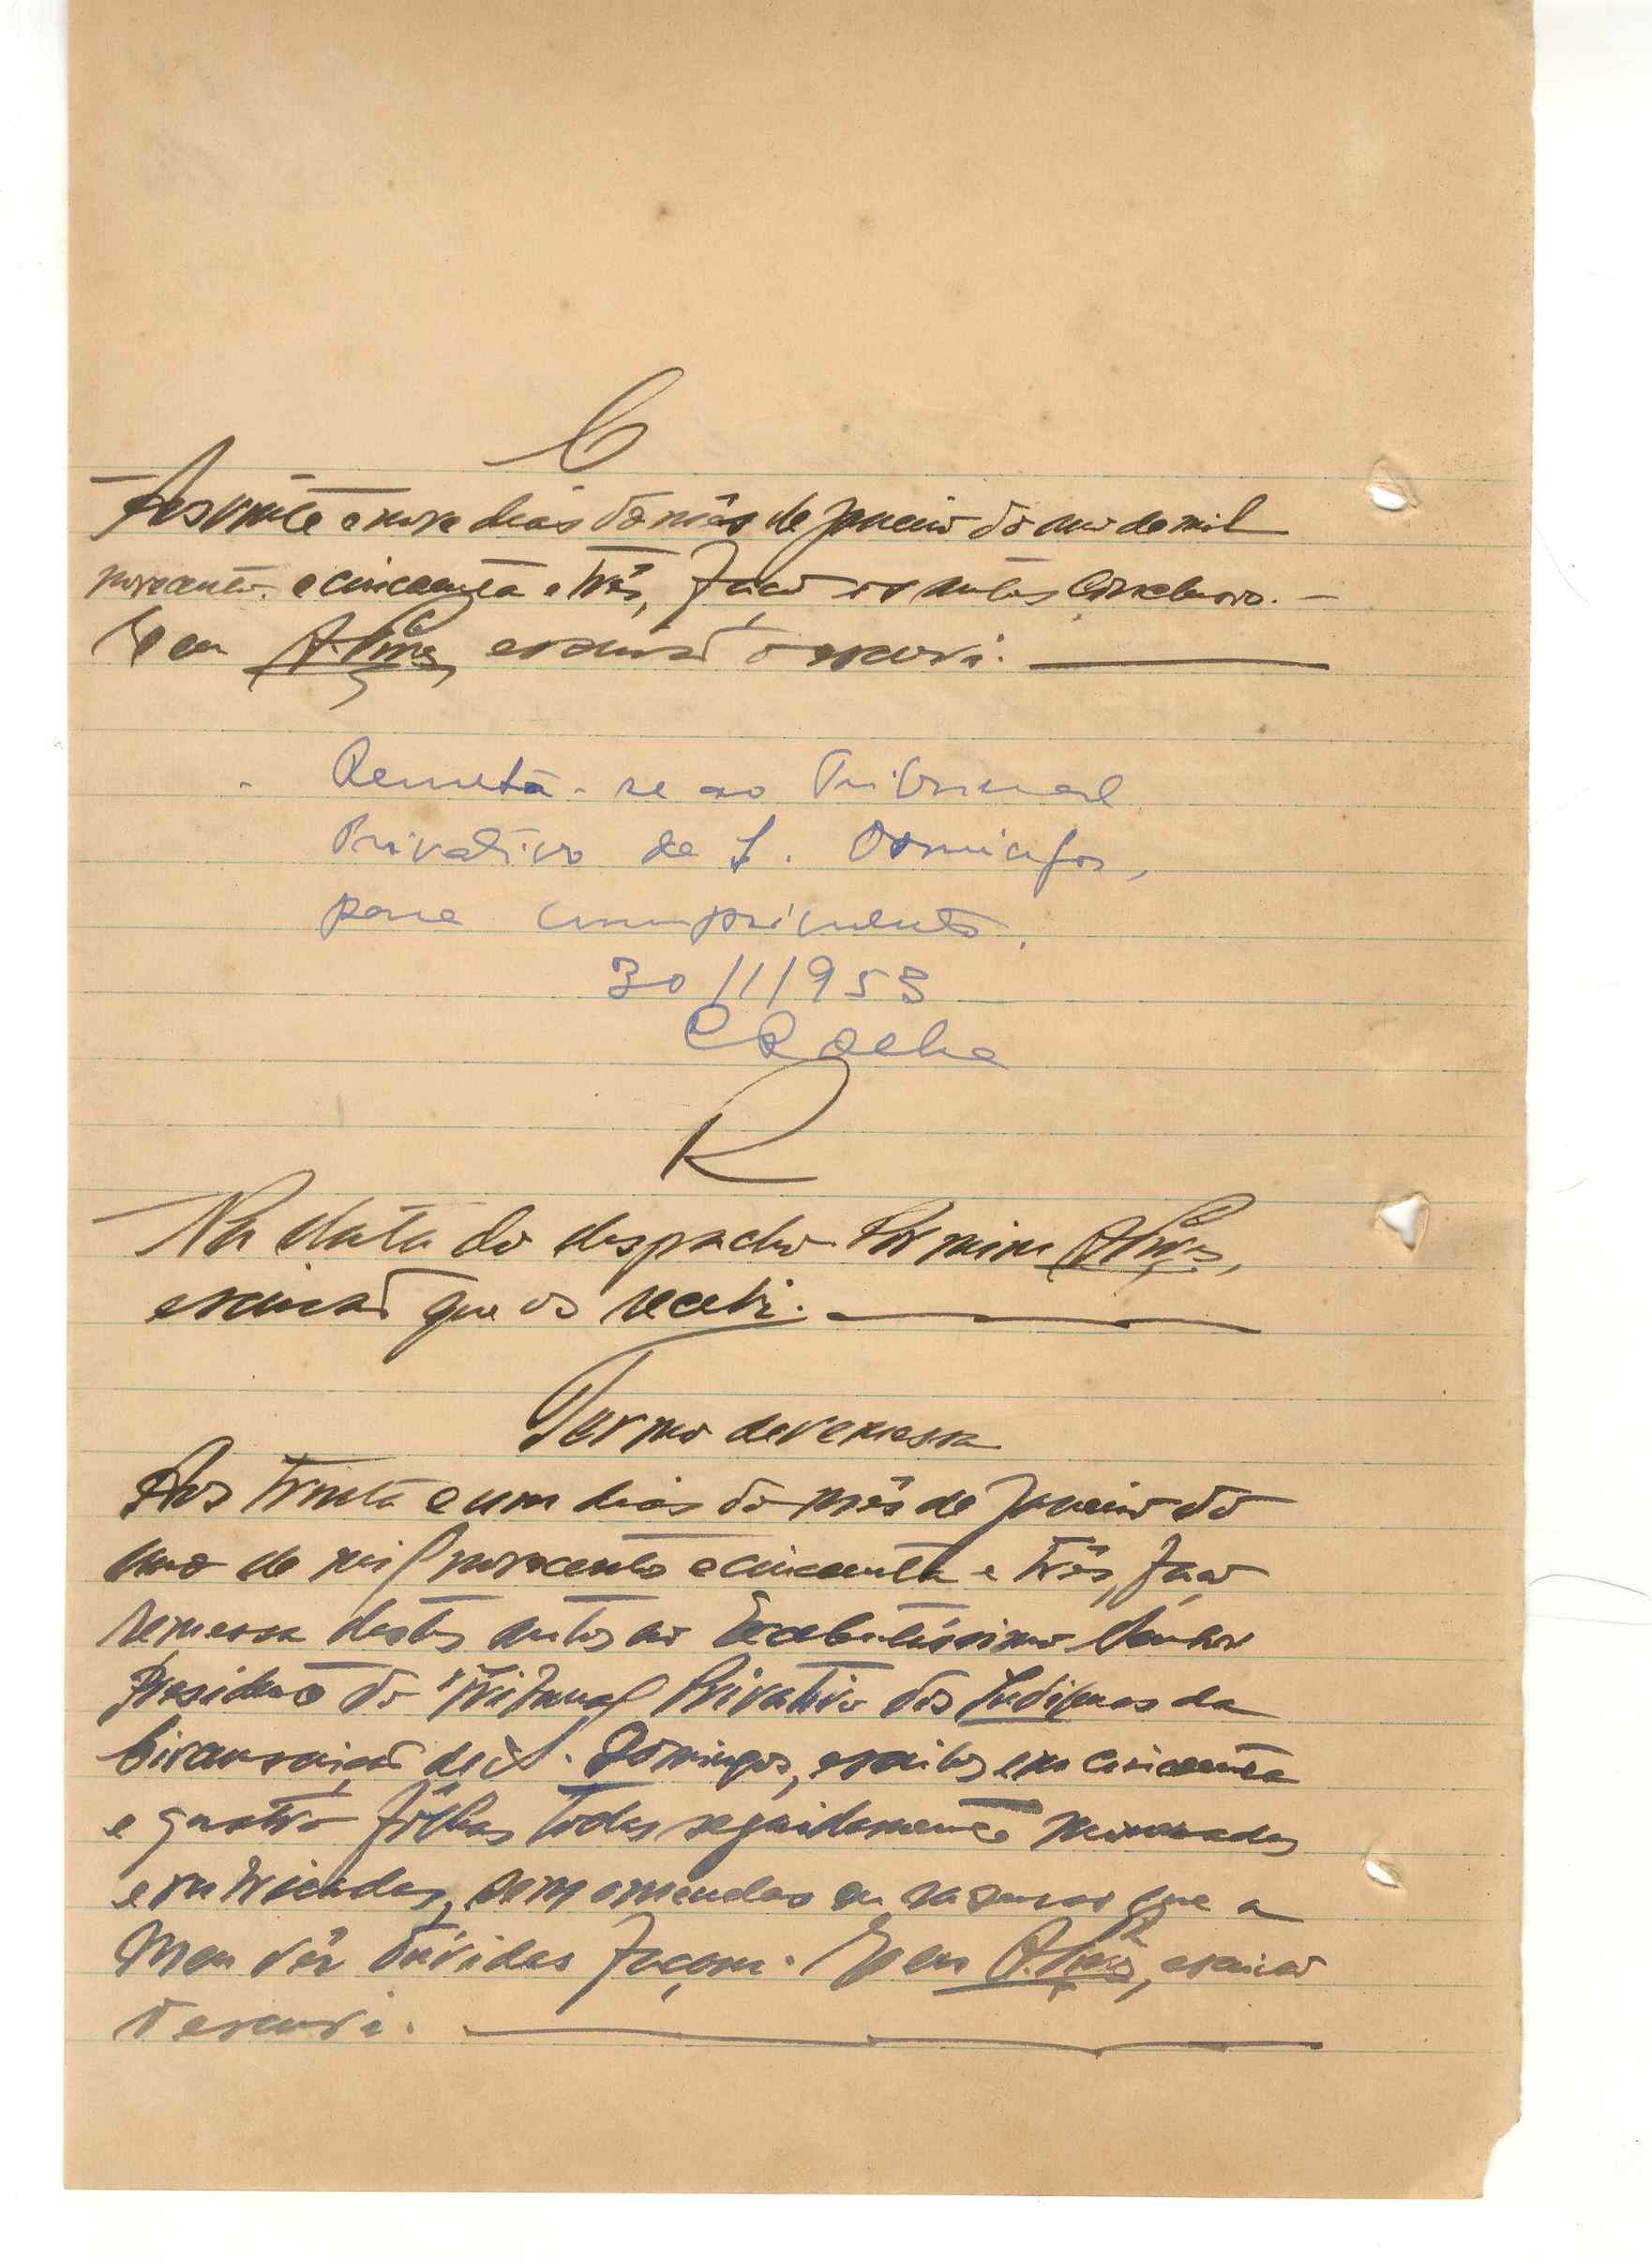 C
Aos vinte e nove dias do mês de Janeiro do ano de mil
novecentos e cincoenta e três, faço os autos conclusos. —
E eu escrivão o escrevi.
Remeta-se ao Tribunal
Privativo de S. Domingos,
para cumprimento.
30/1/1953
CRocha
R
Na data do despacho. Por mim
escrivão que os recebi.
Termo de remessa
Aos trinta e um dias do mês de Janeiro do
ano de mil novecentos e cincoenta e três, faço
remessa destes autos ao Excelentíssimo Senhor
Presidente do Tribunal Privativo dos Indígenas da
Circunscrição de S. Domingos, escritos em cincoenta
e quatro fôlhas todas seguidamente numeradas
e rubricadas, sem emendas ou rasuras que a
meu vêr dúvidas façam. E eu escrivão
o escrevi.